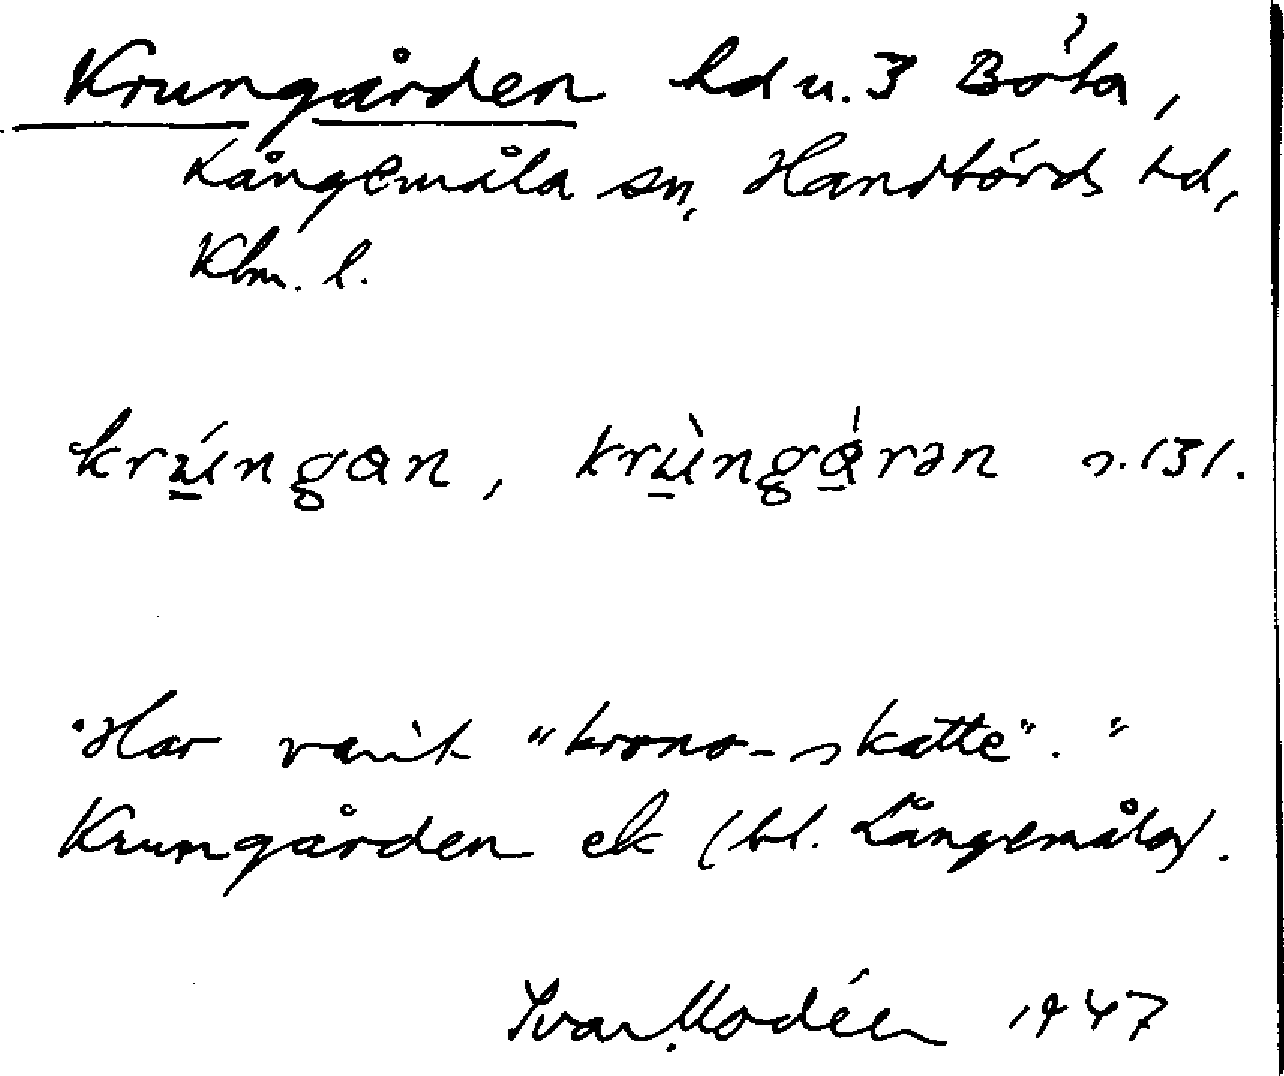 Krungården hd u. 3 Böta,
Långemåla sn, Handbörds hd,
Klm. l.
krúngan, krùngáran s. 131.
"Har varit "krono-skatte"."
Krungården ek (bl. Långemåla).
Ivar Modéer 1947